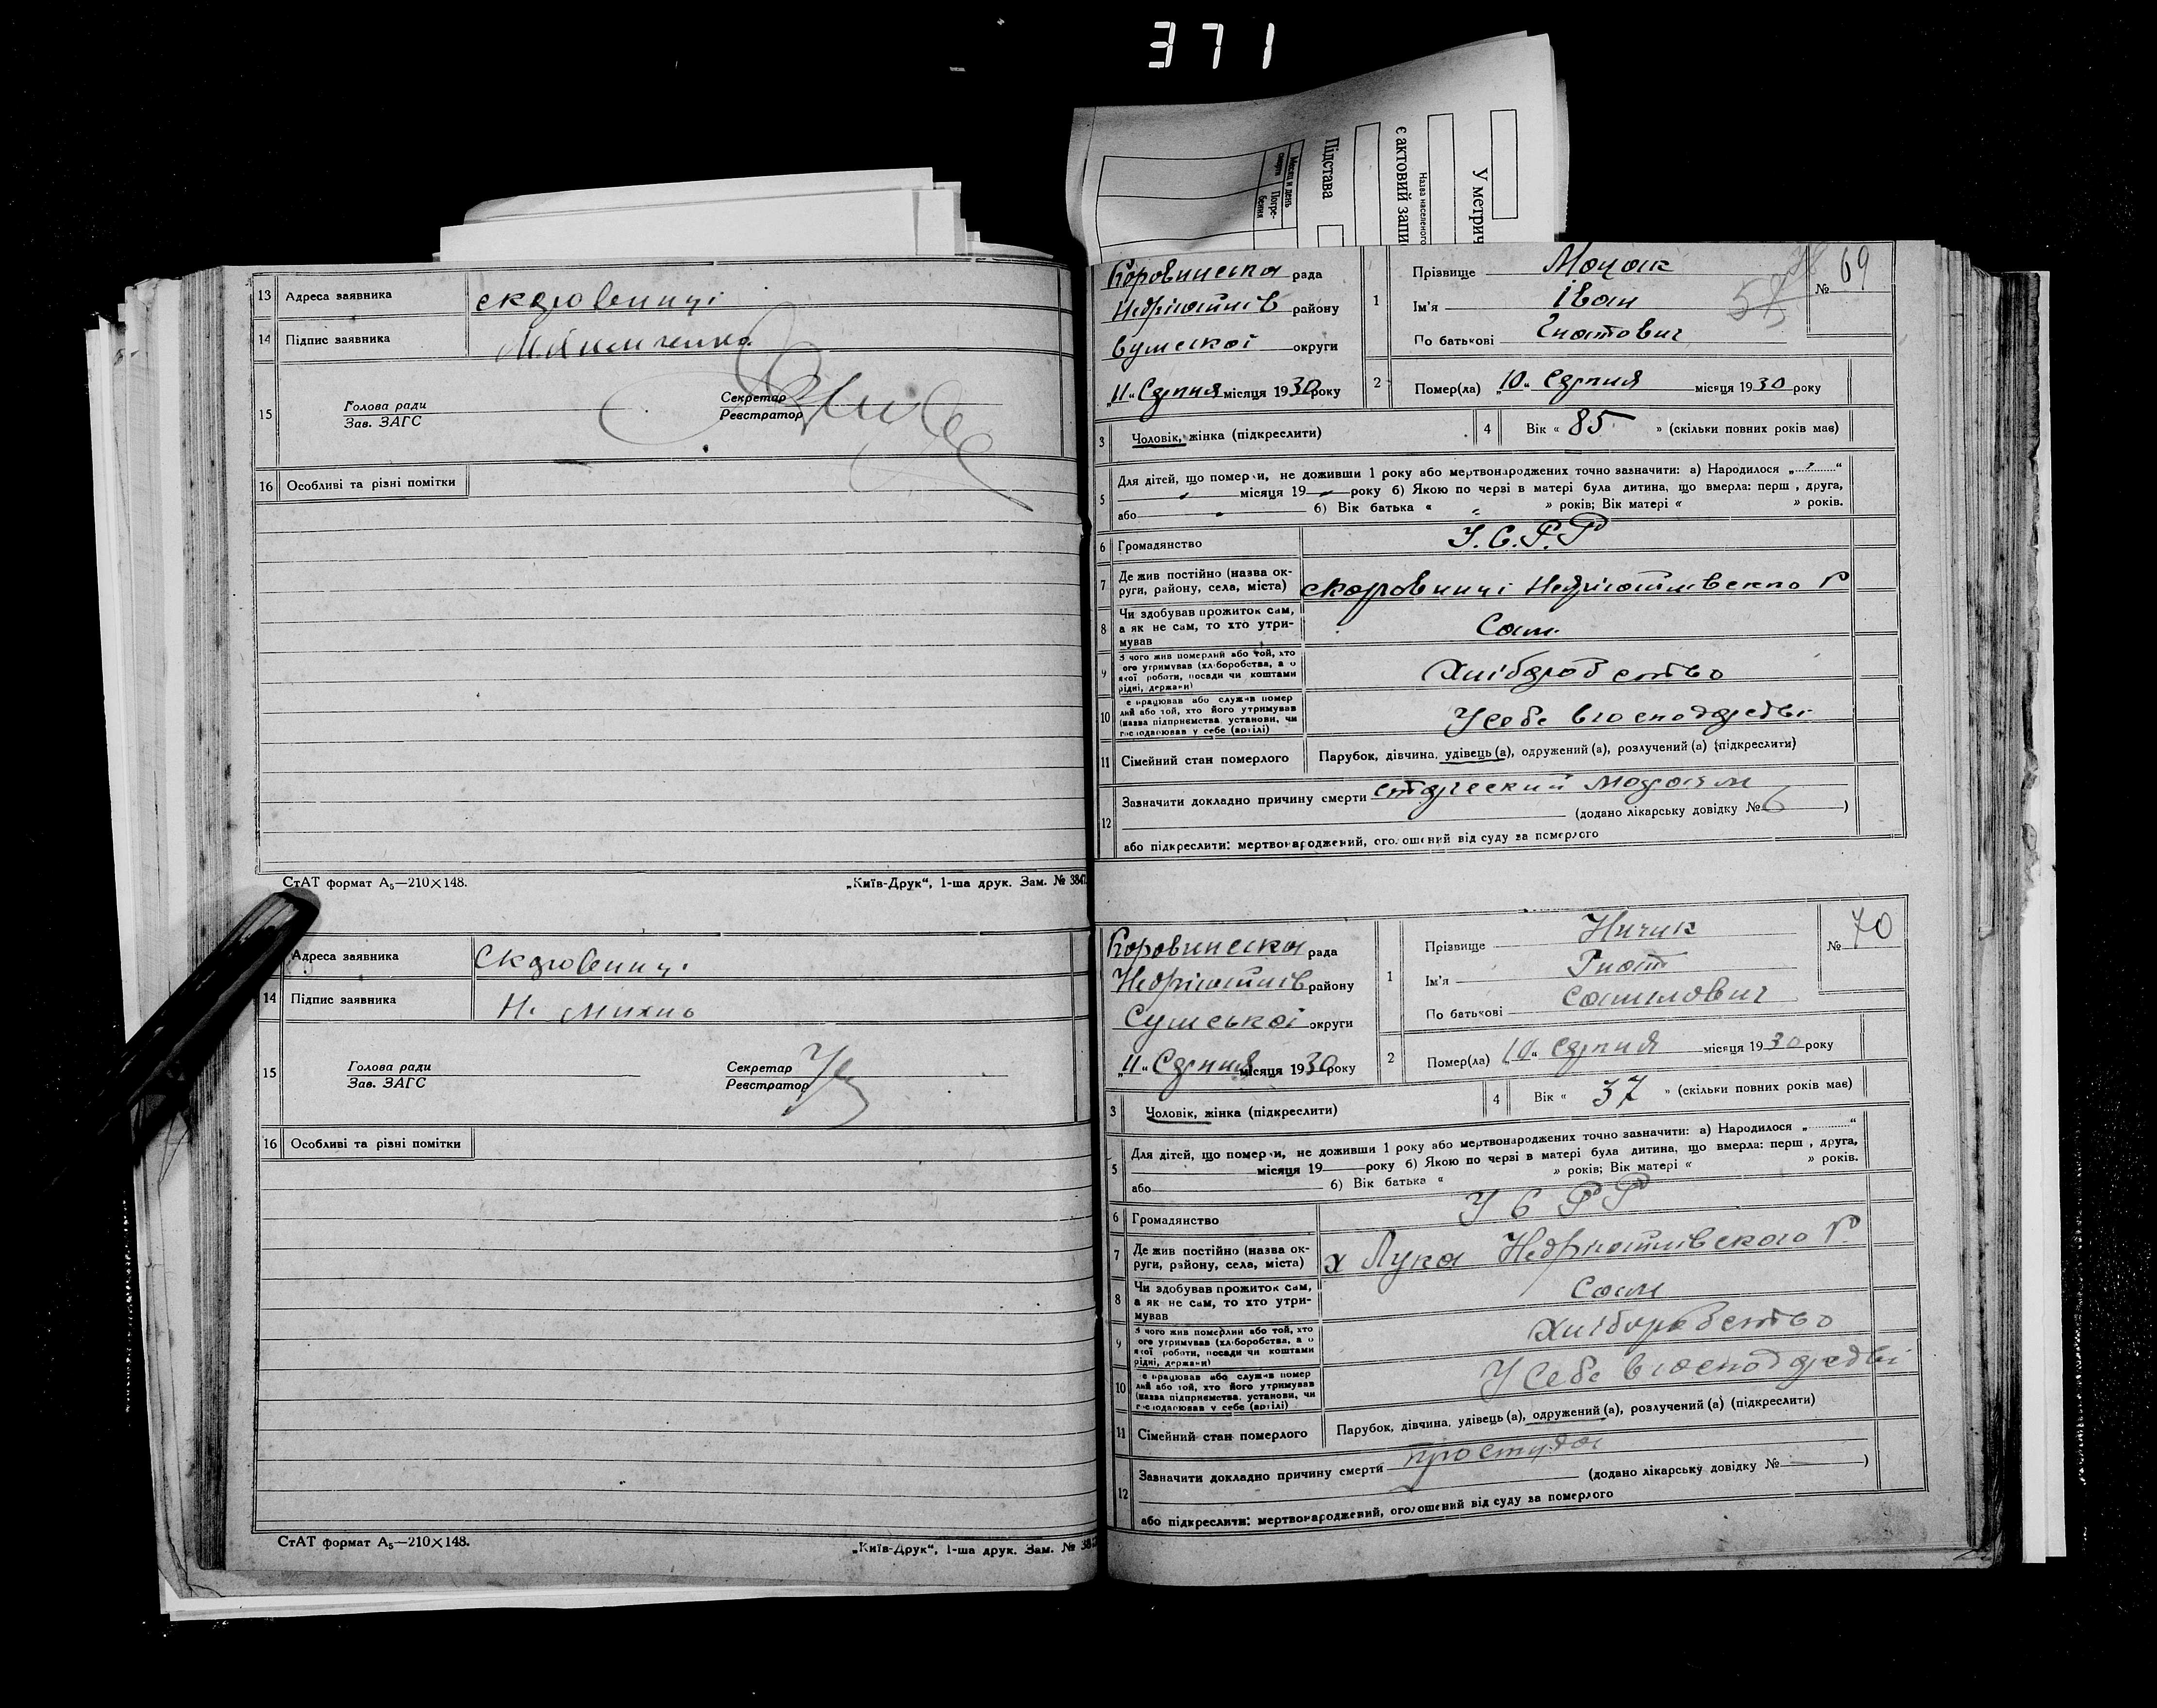 371
У метрич
Назва населеного
є актовий запи
Підстава
Месяц и день
смерти
Погре-
бения
13 Адреса заявника
14 Підпис заявника
15 Голова ради
Зав. ЗАГС
Секретар
Реєстратор
16 Особливі та різні помітки
СтАТ формат А₅—210×148.
„Київ-Друк“, 1-ша друк. Зам. № 384
Адреса заявника
14 Підпис заявника
15 Голова ради
Зав. ЗАГС
Секретар
Реєстратор
16 Особливі та різні помітки
СтАТ формат А₅—210×148.
„Київ-Друк“, 1-ша друк. Зам. № 38
Коровинська рада
Недригайлів району
округи
„11“ Серпня місяця 1930 року
1 Прізвище
Ім'я Іван
По батькові Гнатович
№ 69
2 Помер(ла) „10“ Серпня місяця 1930 року
3 Чоловік, жінка (підкреслити)
4 Вік « 85 » (скільки повних років має)
5 Для дітей, що померли, не доживши 1 року або мертвонароджених точно зазначити: а) Народилося „ “
місяця 19 року б) Якою по черзі в матері була дитина, що вмерла: перш , друга,
або б) Вік батька « » років; Вік матері « » років.
6 Громадянство У.С.Р.Р
7 Де жив постійно (назва ок-
руги, району, села, міста) с коровинці Недригайлівского Р
8 Чи здобував прожиток сам,
а як не сам, то хто утри-
мував Сам.
9 З чого жив померлий або той, хто
його утримував (хліборобства, а о
якої роботи, посади чи коштами
рідні, держави) Хліборобство
10 е працював або служив помер
лий або той, хто його утримував
(назва підприємства, установи, чи
господарював у себе (артілі) У себе в господарстві
11 Сімейний стан померлого Парубок, дівчина, удівець (а), одружений (а), розлучений (а) (підкреслити)
12 Зазначити докладно причину смерти
(додано лікарську довідку № 6 )
або підкреслити: мертвонароджений, оголошений від суду за померлого
Коровинська рада
Недригайлів району
Сумської округи
„11“ Серпня місяця 1930 року
1 Прізвище Ничик
Ім'я Гнат
По батькові Самилович
№ 70
2 Помер(ла) „10“ Серпня місяця 1930 року
3 Чоловік, жінка (підкреслити)
4 Вік « 37 » (скільки повних років має)
5 Для дітей, що померли, не доживши 1 року або мертвонароджених точно зазначити: а) Народилося „ “
місяця 19 року б) Якою по черзі в матері була дитина, що вмерла: перш , друга,
або б) Вік батька « » років; Вік матері « » років.
6 Громадянство У С Р Р
7 Де жив постійно (назва ок-
руги, району, села, міста) х Лука Недригайлівского Р.
8 Чи здобував прожиток сам,
а як не сам, то хто утри-
мував Сам
9 З чого жив померлий або той, хто
його утримував (хліборобства, а о
якої роботи, посади чи коштами
рідні, держави) Хліборобство
10 е працював або служив помер
лий або той, хто його утримував
(назва підприємства, установи, чи
господарював у себе (артілі) У себе в господарстві
11 Сімейний стан померлого Парубок, дівчина, удівець (а), одружений (а), розлучений (а) (підкреслити)
12 Зазначити докладно причину смерти простуда
(додано лікарську довідку № )
або підкреслити: мертвонароджений, оголошений від суду за померлого